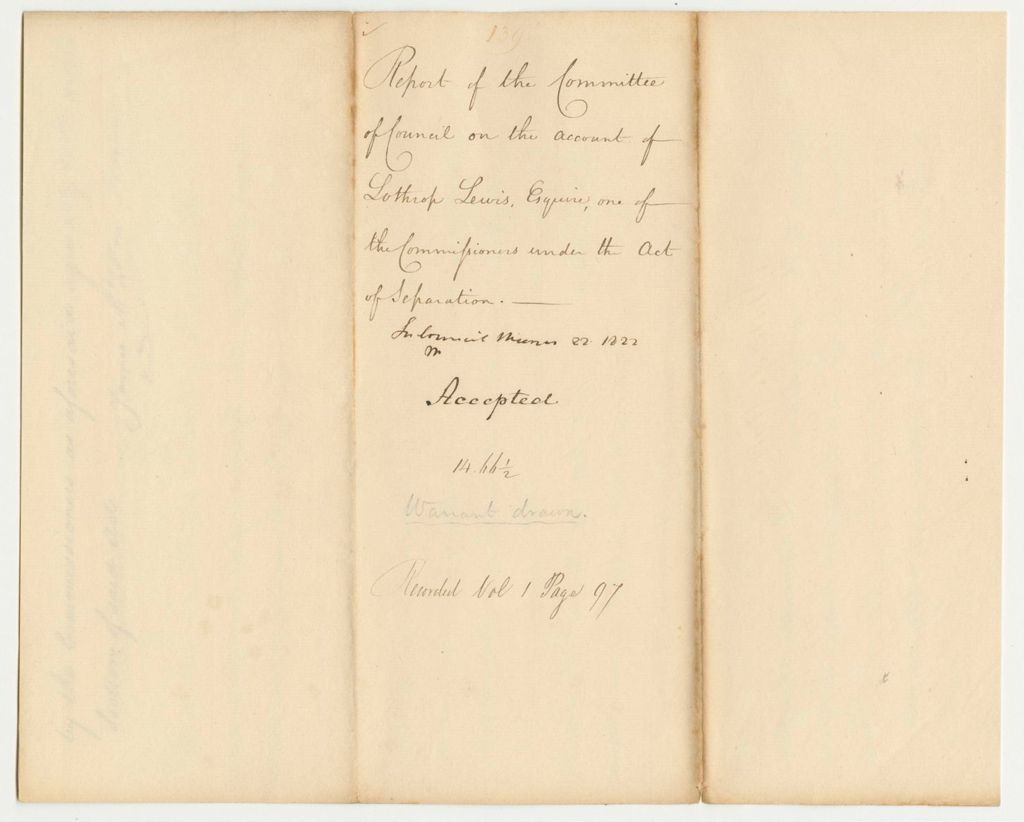 139
Report of the Committee
of Council on the account of
Lothrop Lewis, Esquire, one of
the Commissioners under the Act
of Separation.
In Council 22 1822
Accepted
14.66½
Warrant drawn.
Recorded Vol 1 Page 97
by the Commissioners